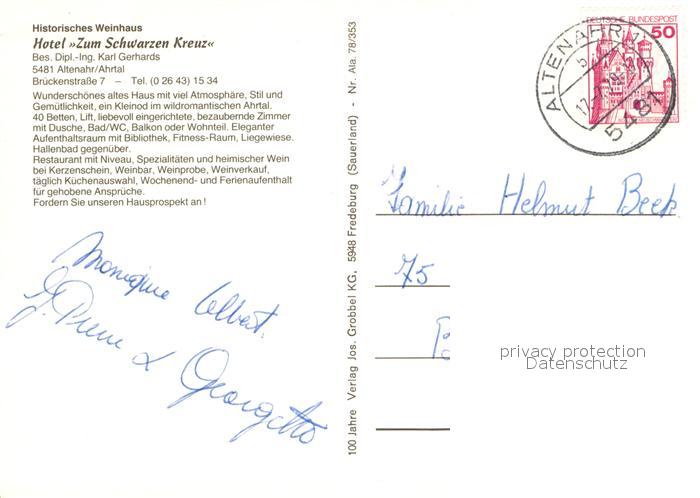 Historisches Weinhaus
Hotel »Zum Schwarzen Kreuz«
Bes. Dipl.-Ing. Karl Gerhards
5481 Altenahr/Ahrtal
Brückenstraße 7 – Tel. (0 26 43) 15 34
Wunderschönes altes Haus mit viel Atmosphäre, Stil und
Gemütlichkeit, ein Kleinod im wildromantischen Ahrtal.
40 Betten, Lift, liebevoll eingerichtete, bezaubernde Zimmer
mit Dusche, Bad/WC, Balkon oder Wohnteil. Eleganter
Aufenthaltsraum mit Bibliothek, Fitness-Raum, Liegewiese.
Hallenbad gegenüber.
Restaurant mit Niveau, Spezialitäten und heimischer Wein
bei Kerzenschein, Weinbar, Weinprobe, Weinverkauf,
täglich Küchenauswahl, Wochenend- und Ferienaufenthalt
für gehobene Ansprüche.
Fordern Sie unseren Hausprospekt an!
Monique Albert.
& Georgette
100 Jahre Verlag Jos. Grobbel KG, 5948 Fredeburg (Sauerland) - Nr. Ala. 78/353
DEUTSCHE BUNDESPOST
50
ALTENAHR 1
5481
Familie Helmut Beck
75
privacy protection
Datenschutz